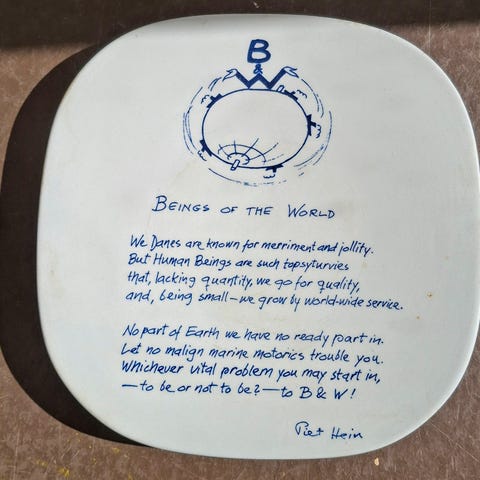 B
&
W
BEINGS OF THE WORLD
We Danes are known for merriment and jollity.
But Human Beings are such topsyturvies
that, lacking quantity, we go for quality,
and, being small – we grow by world-wide service.
No part of Earth we have no ready part in.
Let no malign marine motorics trouble you.
Whichever vital problem you may start in,
– to be or not to be? – to B & W!
Piet Hein